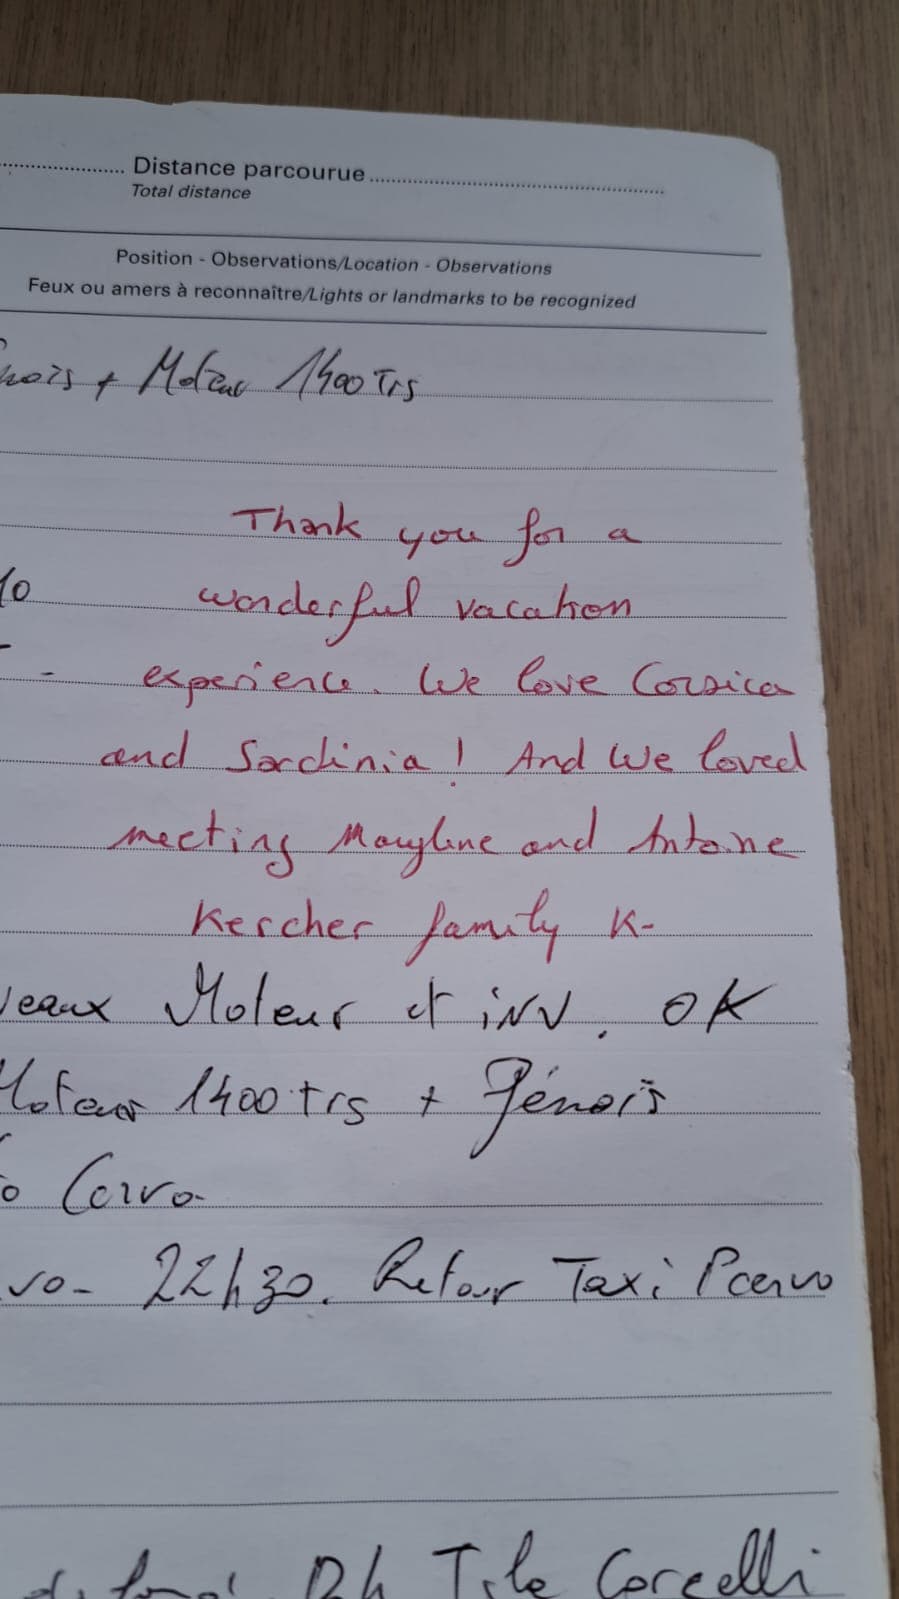 Distance parcourue
Total distance
Position - Observations/Location - Observations
Feux ou amers à reconnaître/Lights or landmarks to be recognized
+ Moteur 1400 Trs
Thank you for a
10
wonderful vacation
- experience. We love Corsica
and Sardinia! And We loved
meeting Mayline and Antoine
Kercher family K-
Moteur et iNV. OK
Moteur 1400 trs + Génois
Cervo
vo- 22h30. Retour Taxi Pcervo
12h